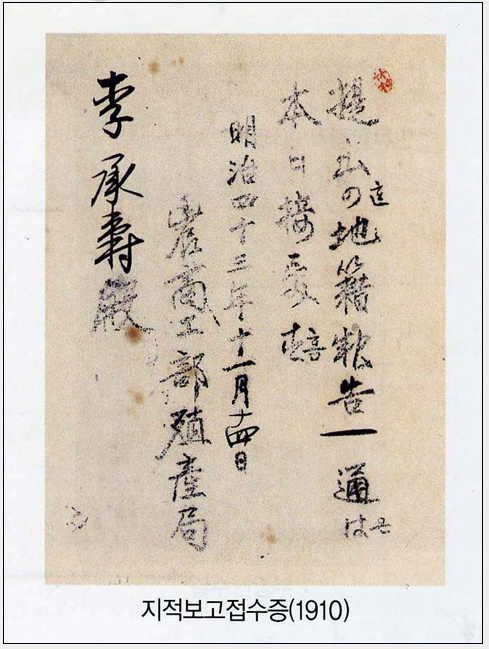 提出の地籍報告一通は
本日接受
明治四十三年十一月十四日
農商工部殖產局
李承壽殿
지적보고접수증(1910)